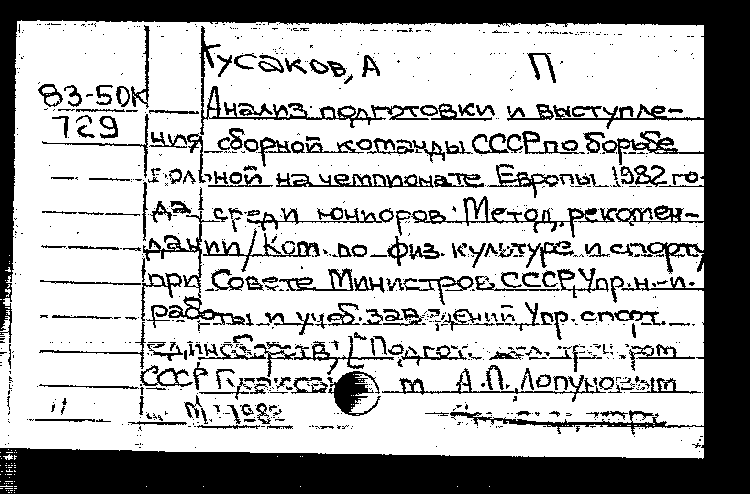 Гусаков, А П
83-50К
729
Анализ подготовки и выступле-
ния сборной команды СССР по борьбе
вольной на чемпионате Европы 1982 го-
да среди юниоров: Метод. рекомен-
дации / Ком. по физ. культуре и спорту
при Совете Министров СССР, Упр. н.-и.
работы и учеб. заведений, Упр. спорт.
единоборств; [Подгот.
СССР А.П., Лопуновым
М., 1982